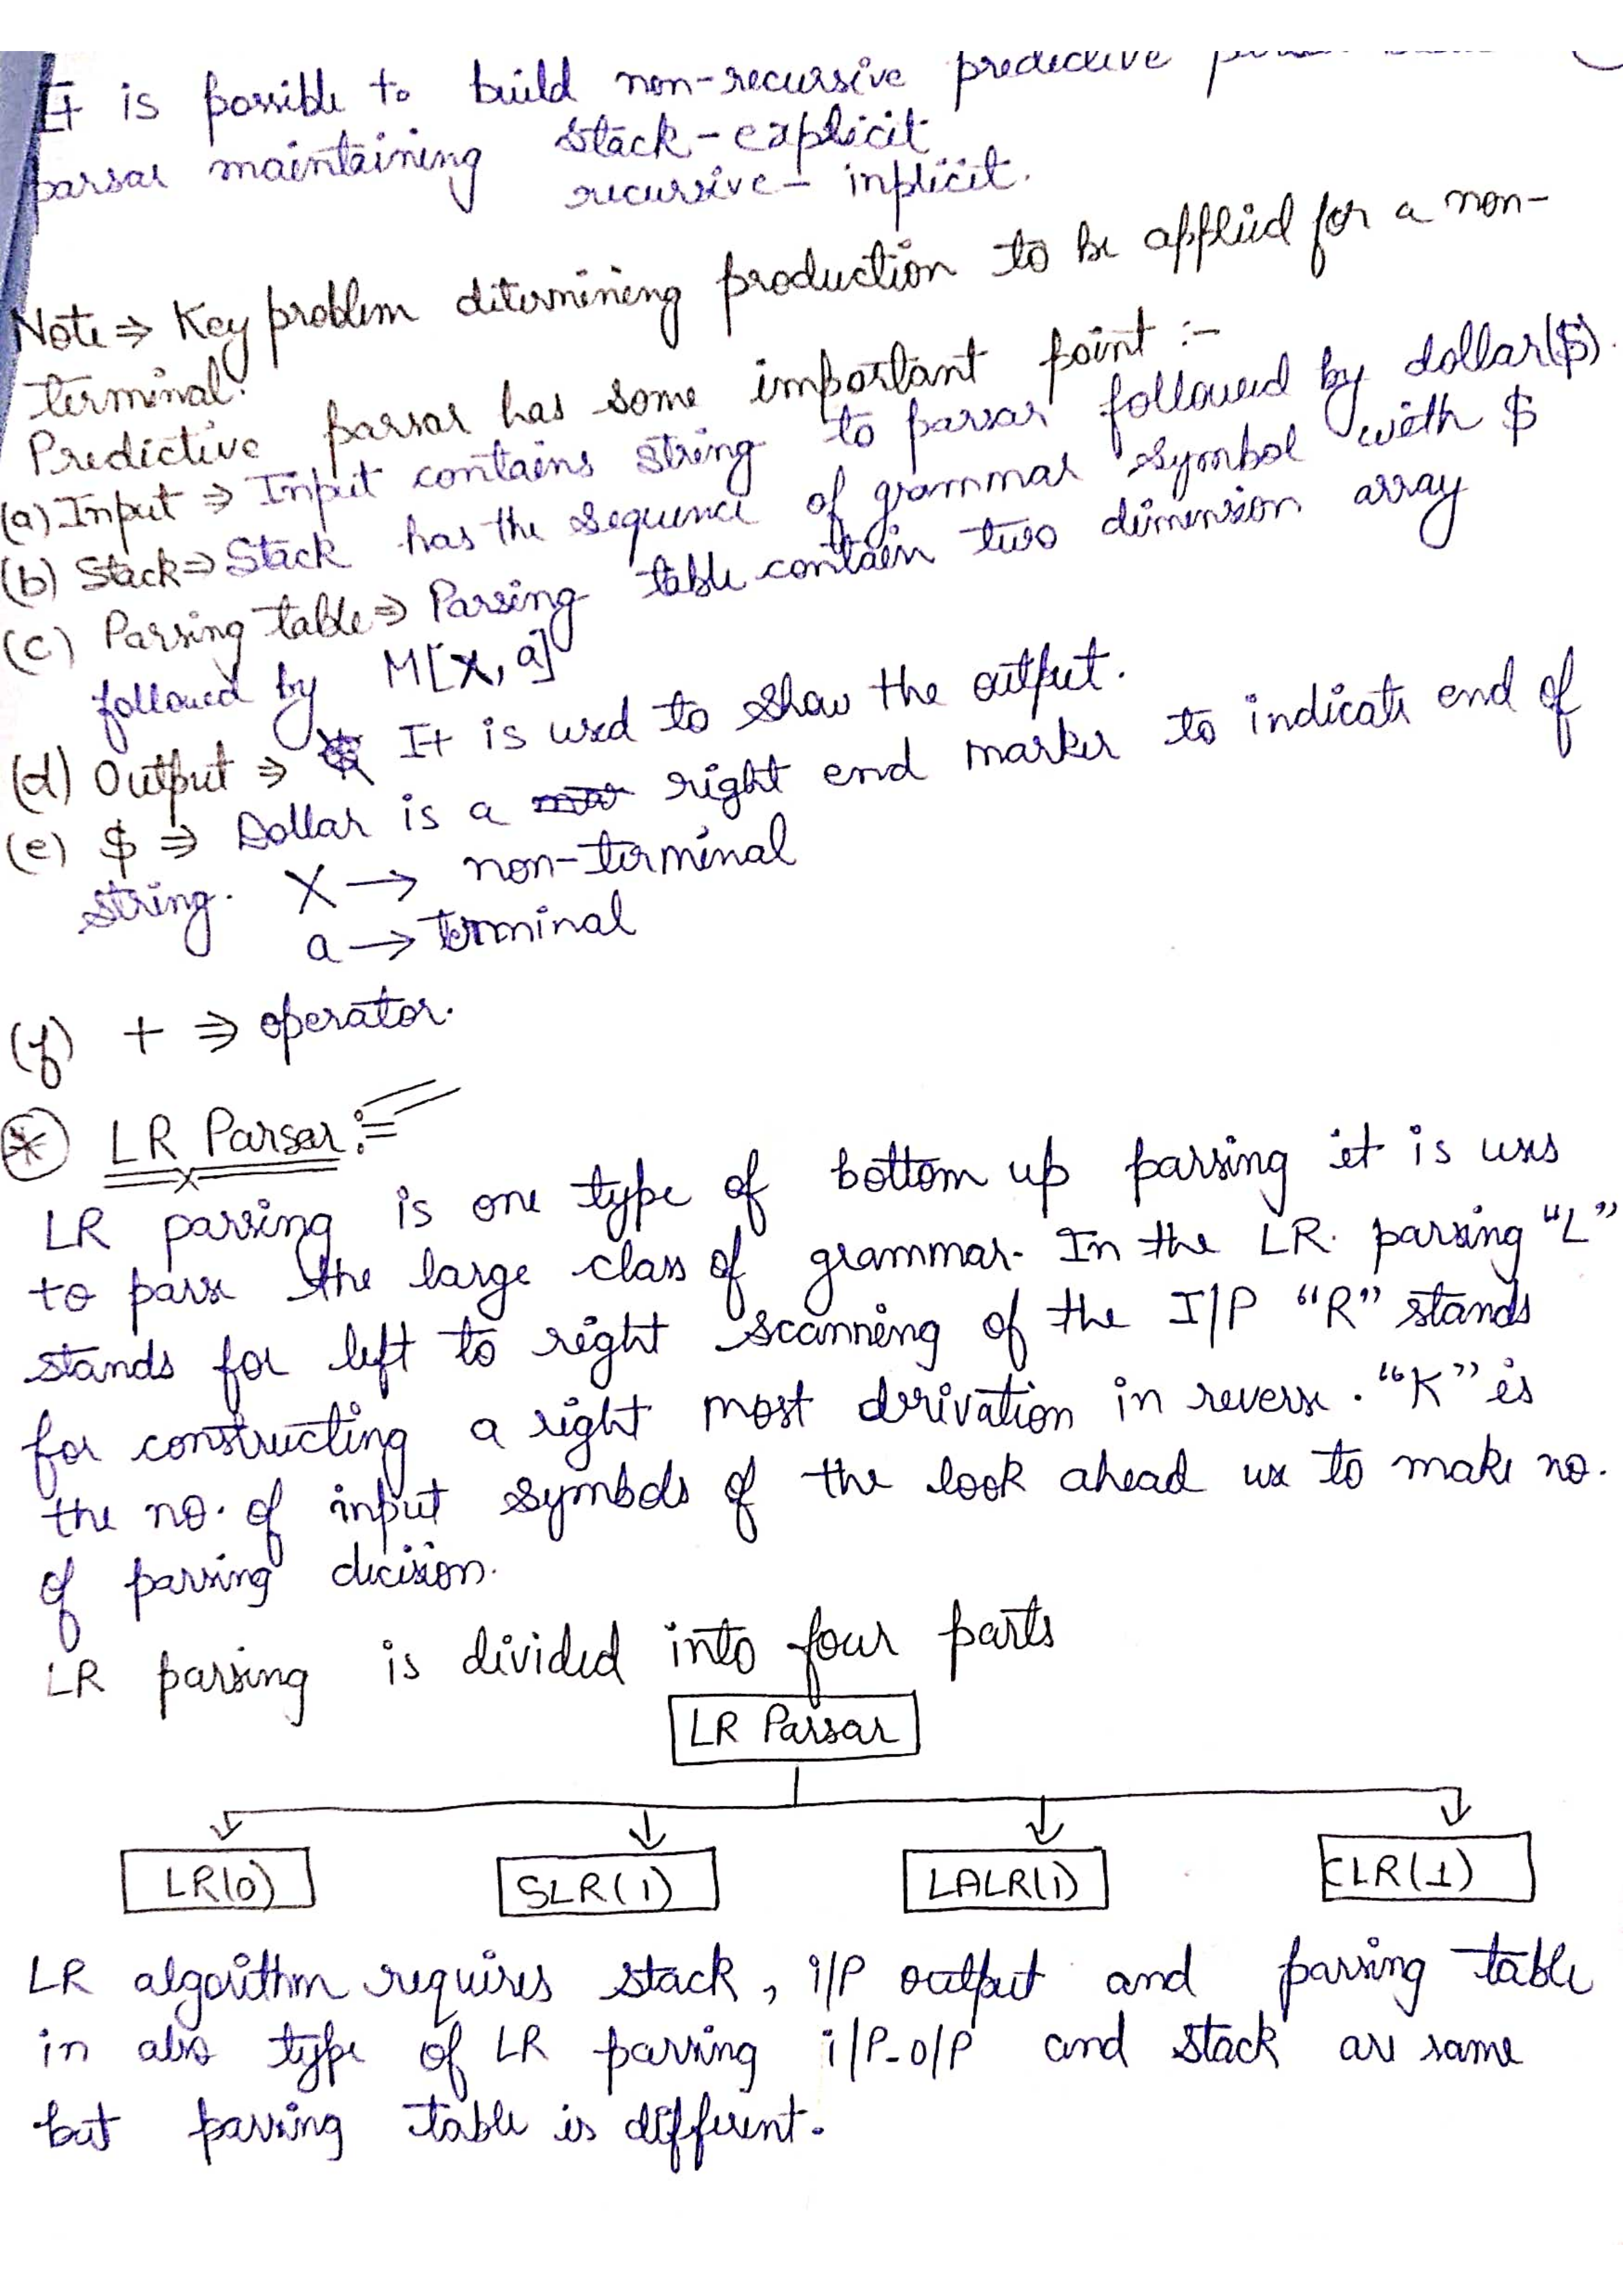 It is possible to build non-recursive predective
parsar maintaining stack-explicit
recursive- inplicit.
Note ⇒ Key problem ditermining production to be applied for a non-
terminal.
Predictive parsar has some important point :-
(a) Input ⇒ Input contains string to parsar followed by dollar($).
(b) Stack ⇒ Stack has the sequence of grammar symbol with $
(c) Parsing table ⇒ Parsing table contain two dimension array
followed by M[X, a]
(d) Output ⇒ It is used to show the output.
(e) $ ⇒ Dollar is a right end marker to indicate end of
string. X → non-terminal
a → terminal
(f) + ⇒ operator.
* LR Parsar :=
LR parsing is one type of bottom up parsing it is uses
to parse the large class of grammar. In the LR. parsing "L"
stands for left to right scanning of the I/P "R" stands
for constructing a right most derivation in reverse. "K" is
the no. of input symbols of the look ahead use to make no.
of parsing decision.
LR parsing is divided into four parts
LR Parsar
LR(0) SLR(1) LALR(1) CLR(1)
LR algorithm requires stack, i/P output and parsing table
in also type of LR parsing i/P-o/P and stack are same
but parsing table is different.